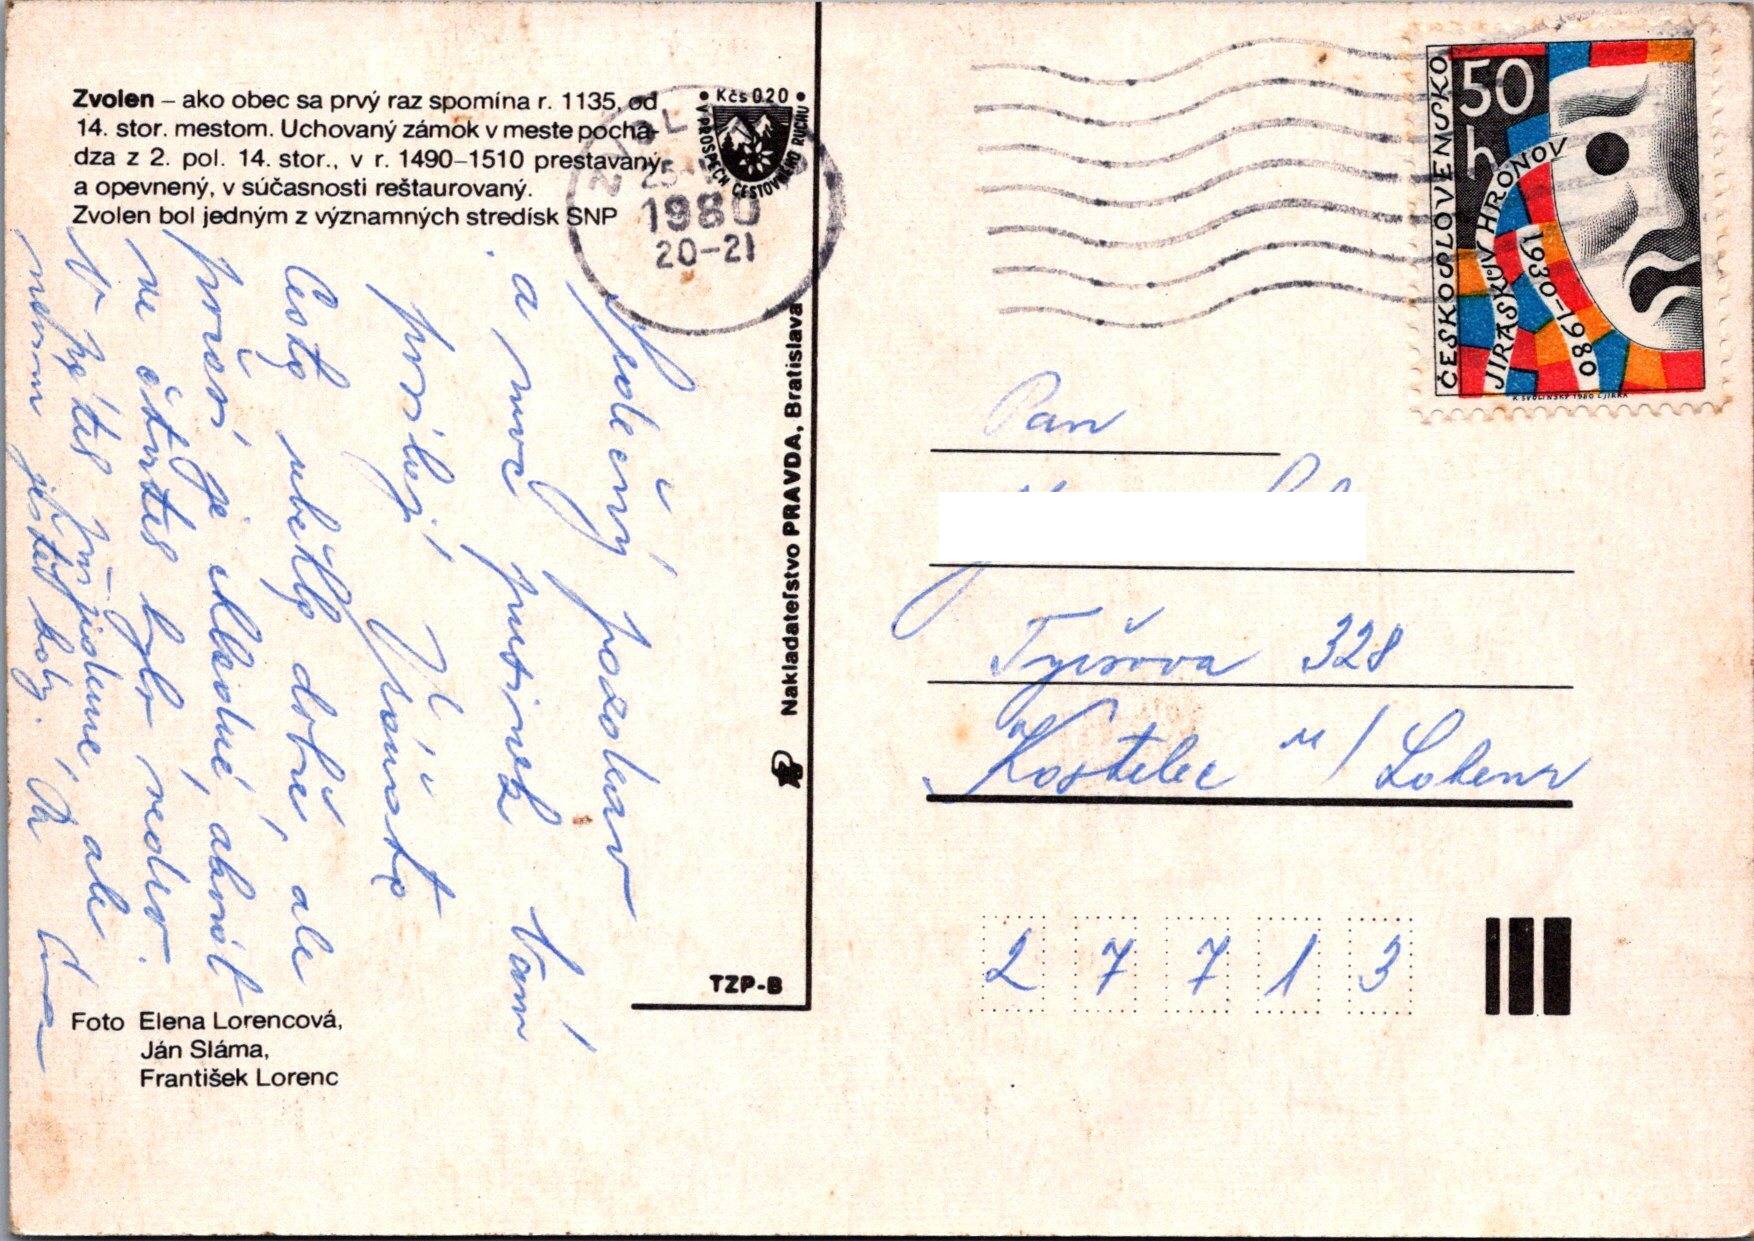 Zvolen – ako obec sa prvý raz spomína r. 1135, od
14. stor. mestom. Uchovaný zámok v meste pochá-
dza z 2. pol. 14. stor., v r. 1490–1510 prestavaný
a opevnený, v súčasnosti reštaurovaný.
Zvolen bol jedným z významných stredísk SNP
• Kčs 0.20 •
V PROSPECH CESTOVNÉHO RUCHU
1980
20-21
Srdečný pozdrav
a moc pusinek Vám
posílají
Cesta uběhla dobře, ale
počasí je chladné,
ve čtvrtek bylo vedro.
V pátek přijedeme, ale
nevím jestě kdy.
Nakladateľstvo PRAVDA, Bratislava
TZP-B
Foto Elena Lorencová,
Ján Sláma,
František Lorenc
ČESKOSLOVENSKO
50 h
JIRÁSKŮV HRONOV
1930-1980
K. SVOLINSKÝ 1980 L. JIRKA
Pan
Tyršova 328
Kostelec n/Labem
27713